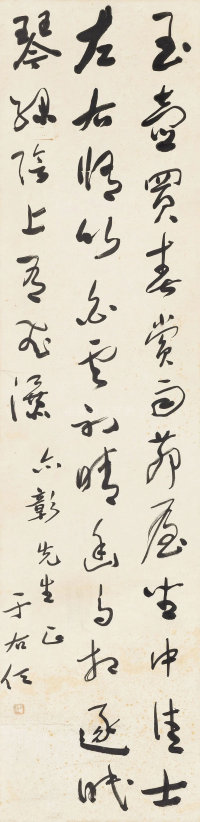 玉壺買春賞雨茆屋坐中佳士
左右脩竹白雲初晴幽鳥相逐眠
琴綠陰上有飛瀑
彰先生正
于右任